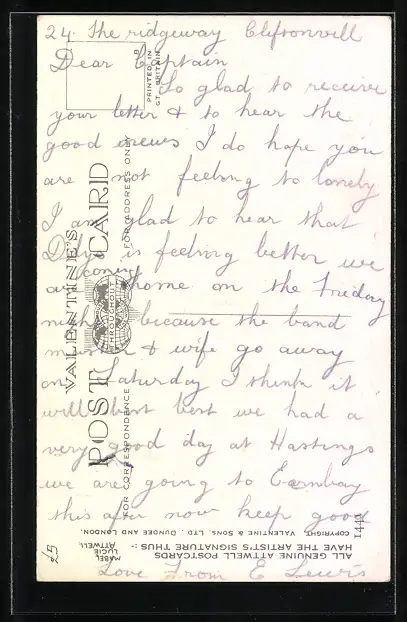 24. The ridgeway Cliftonvill
Dear Captain
So glad to receive
your letter & to hear the
good news I do hope you
are not feeling to lonely
I am glad to hear that
is feeling better we
are coming home on the Friday
night because the band
& wife go away
on Saturday I think it
will best we had a
very good day at Hastings
we are going to
this after now keep good
Love From E Lewis
VALENTINE'S
POST CARD
FOR CORRESPONDENCE
FOR ADDRESS ONLY
PRINTED IN
GT. BRITAIN
ALL GENUINE ATTWELL POSTCARDS
HAVE THE ARTIST'S SIGNATURE THUS :-
MABEL
LUCIE
ATTWELL
COPYRIGHT, VALENTINE & SONS, LTD. DUNDEE AND LONDON.